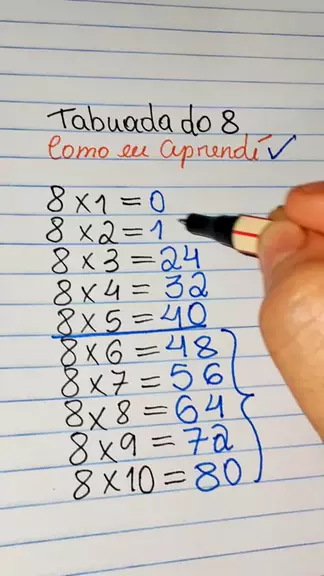 Tabuada do 8
Como eu aprendi ✓
8 x 1 = 0
8 x 2 = 1
8 x 3 = 24
8 x 4 = 32
8 x 5 = 40
8 x 6 = 48
8 x 7 = 56
8 x 8 = 64
8 x 9 = 72
8 x 10 = 80